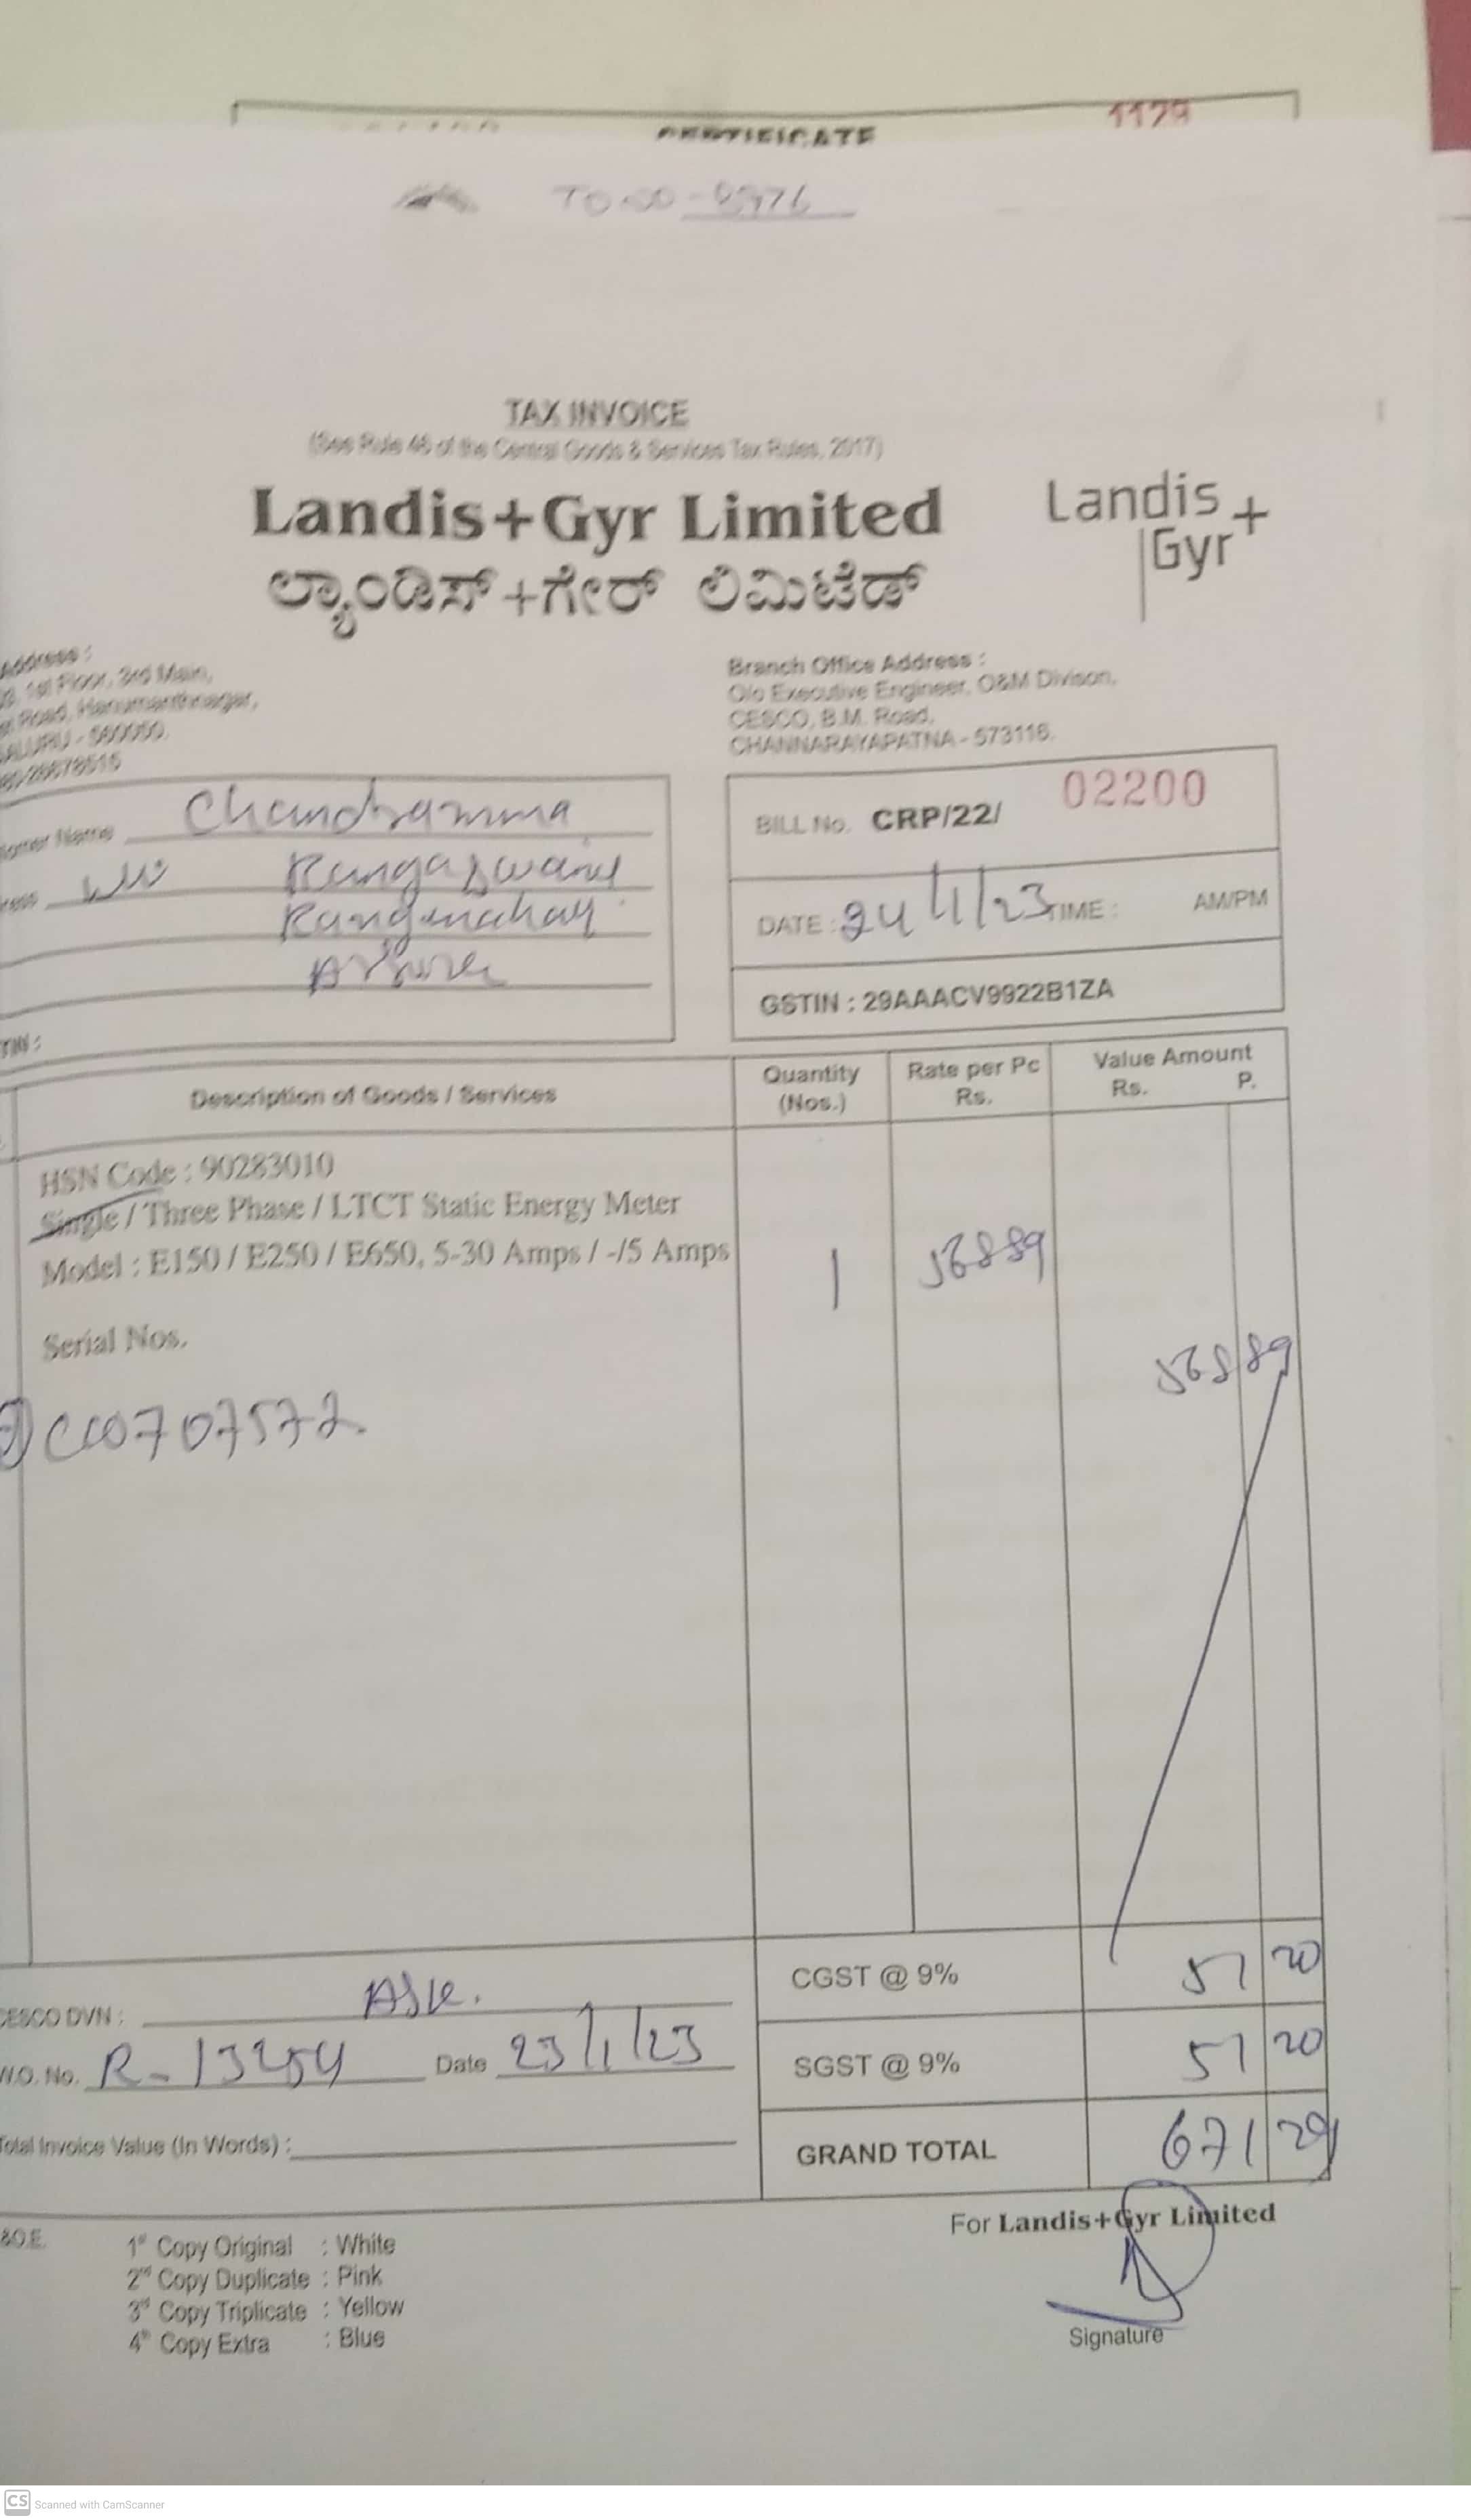 CERTIFICATE
1129
TAX INVOICE
(See Rule 46 of the Central Goods & Services Tax Rules, 2017)
Landis+Gyr Limited
ಲ್ಯಾಂಡಿಸ್+ಗೇರ್ ಲಿಮಿಟೆಡ್
Landis+
Gyr
Address :
1st Floor, 3rd Main,
Road, Hanumanthnagar,
ALURU - 560050.
26678515
Branch Office Address :
O/o Executive Engineer, O&M Divison,
CESCO, B.M. Road,
CHANNARAYAPATNA - 573116.
omer Name Chandramma
Rangaswamy
BILL No. CRP/22/ 02200
DATE : 24/1/23 TIME : AM/PM
GSTIN : 29AAACV9922B1ZA
TIN :
Description of Goods / Services
Quantity (Nos.)
Rate per Pc Rs.
Value Amount Rs. P.
HSN Code : 90283010
Single / Three Phase / LTCT Static Energy Meter
Model : E150 / E250 / E650, 5-30 Amps / -/5 Amps
1 56889
Serial Nos.
568 89
0707572
CGST @ 9% 51 20
SGST @ 9% 51 20
GRAND TOTAL 671 29
CESCO DVN : ASK.
W.O. No. R-13254 Date 23/1/23
Total Invoice Value (In Words) :
&O.E.
1st Copy Original : White
2nd Copy Duplicate : Pink
3rd Copy Triplicate : Yellow
4th Copy Extra : Blue
For Landis+Gyr Limited
Signature
CS Scanned with CamScanner